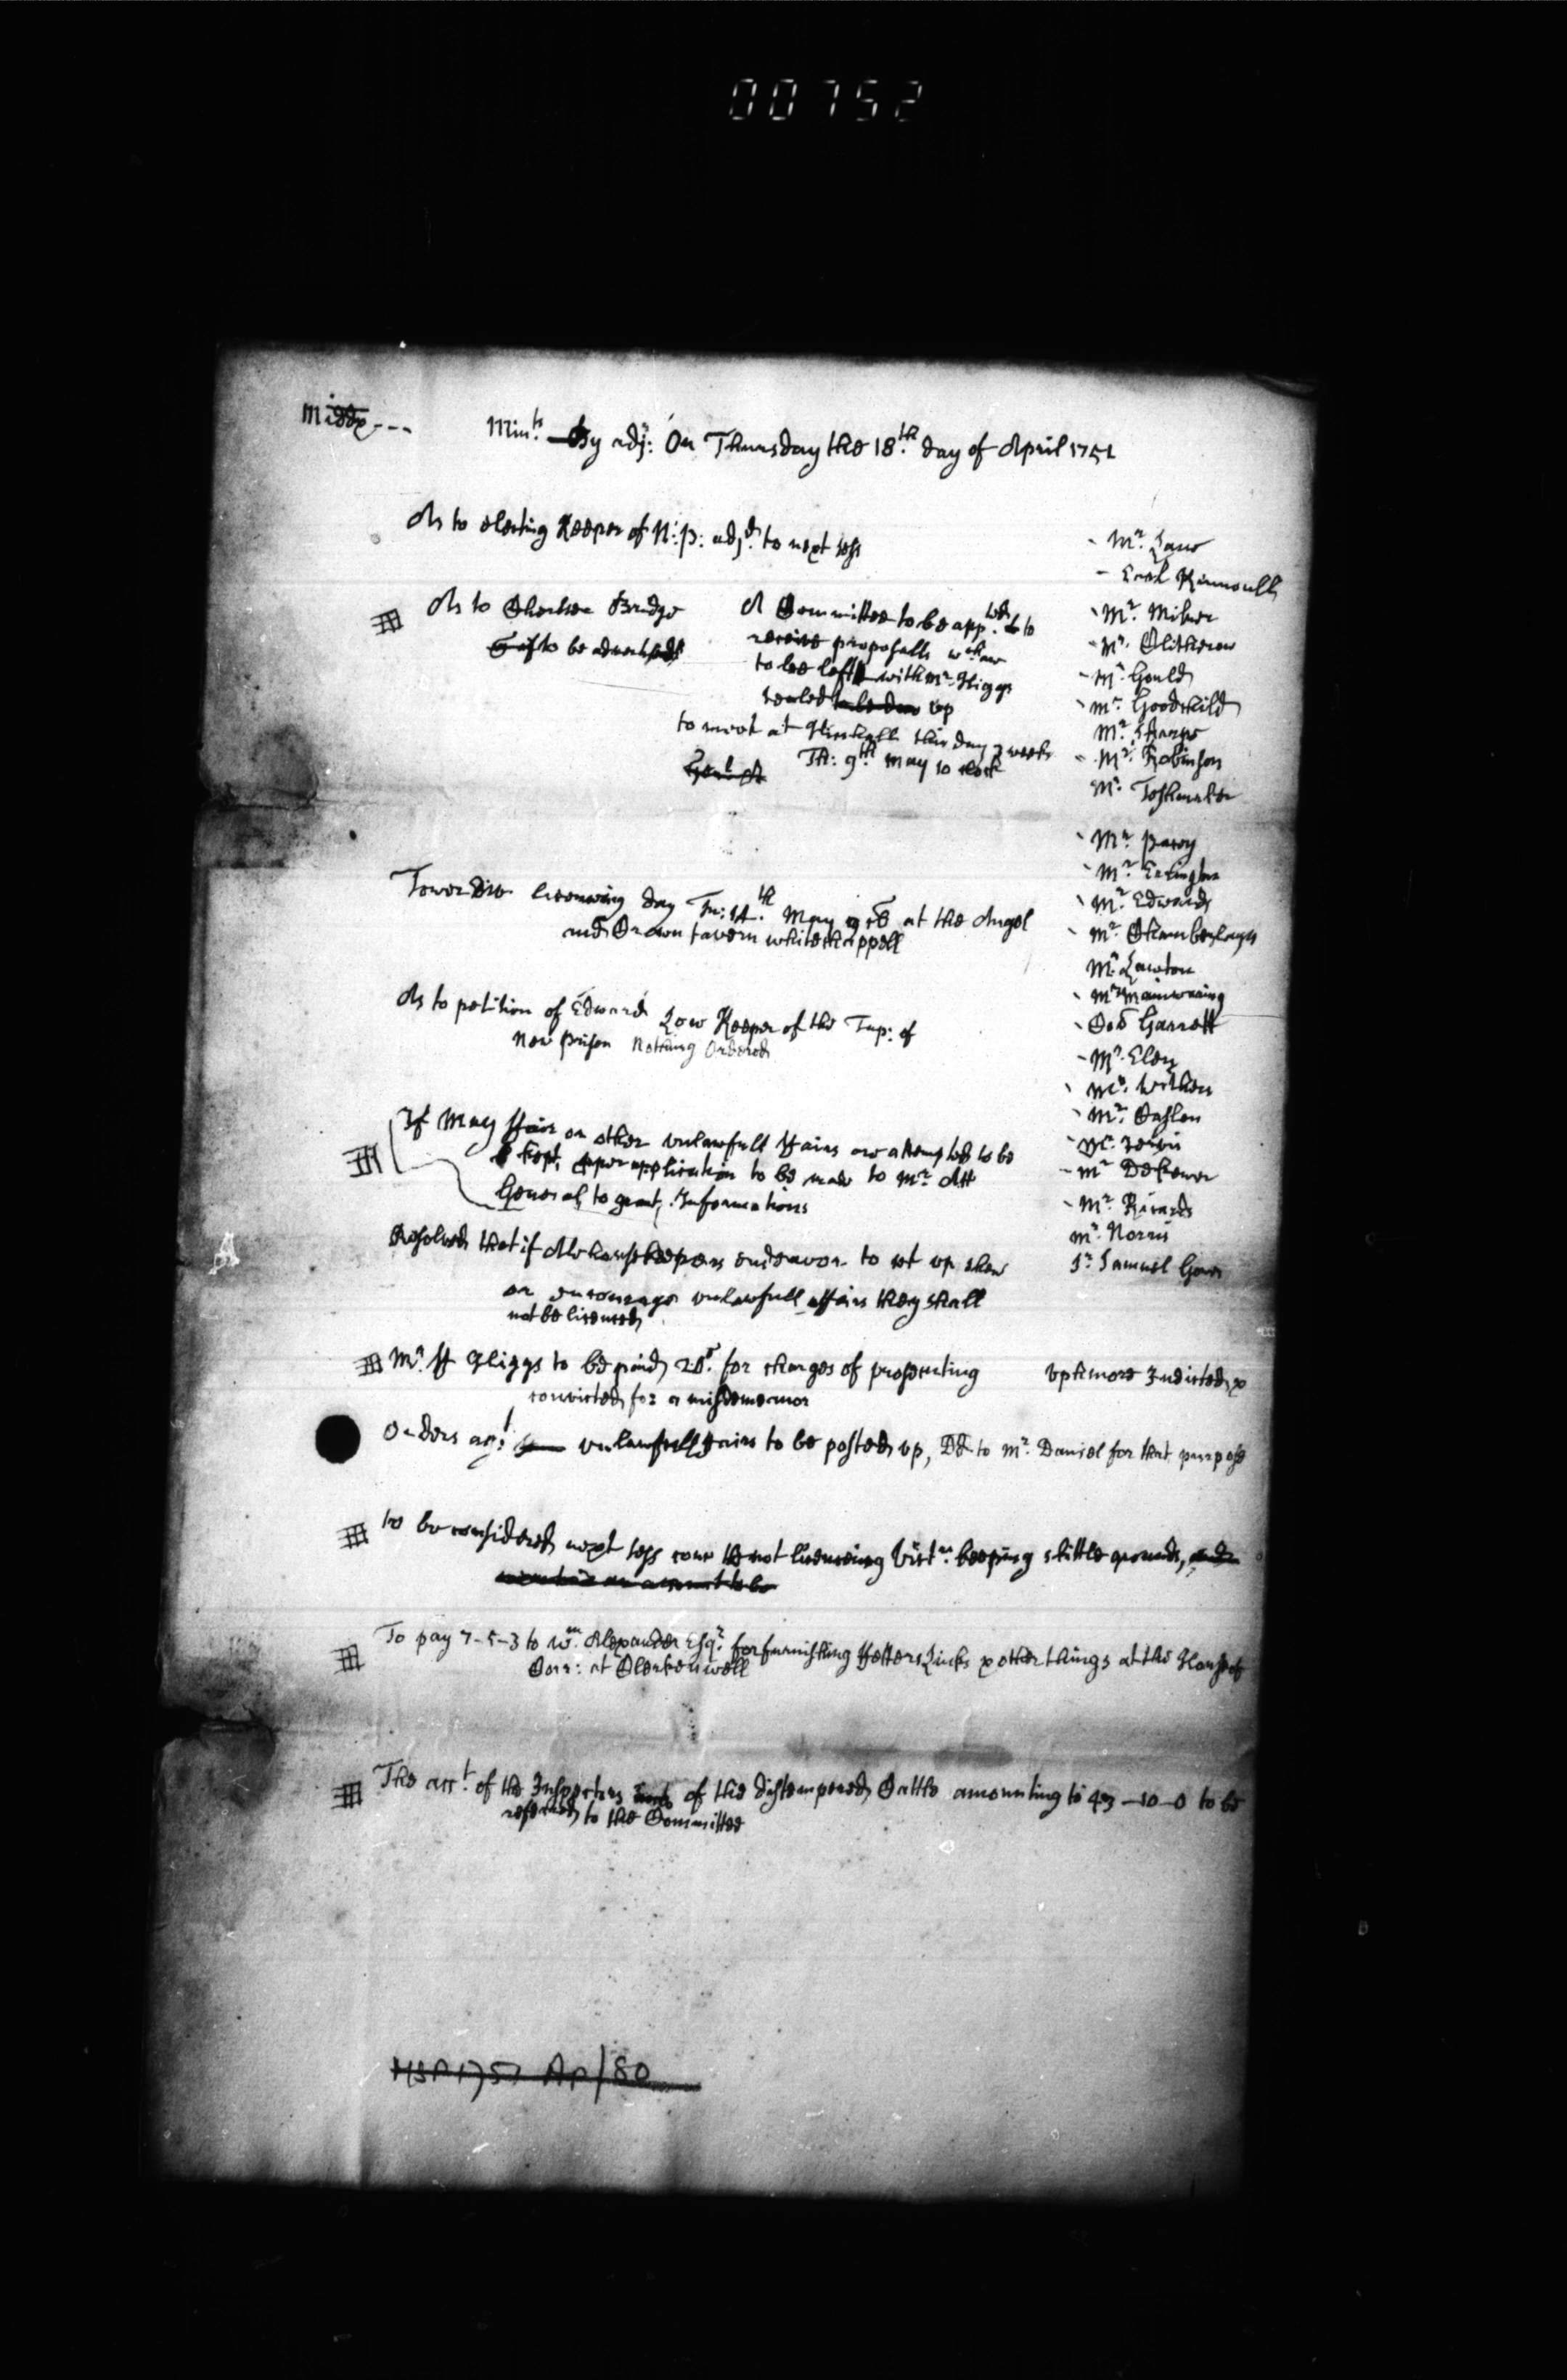 00752
Middx---
Min:ts By adj: On Thursday the 18th. day of April 1751
As to electing Keeper of N: P: adjd. to next sess
As to Chelsea Bridge
to be advertised
A Committee to be appted. to
receive proposalls wch. are
to be left with Mr. Higgs
sealed up
to meet at Hickshall this day 3 weeks
Th: 9th May 10 Clock
Tower Div. licenceing day Tu: 14th. May at the Angel
and Crown tavern whitechappell
As to petition of Edward Low Keeper of the Tap: of
New Prison Nothing Ordered
If May ffair or other unlawfull ffairs are attempted to be
kept, application to be made to Mr. Att
General to grant Informations
Resolved that if Alehousekeepers endeavor to set up shew
or encourage unlawfull ffairs they shall
not be licenced
Mr. Higgs to be paid 20s. for charges of prosecuting upk more Indicted &
convicted for a misdemeanor
Orders agt. unlawfull ffairs to be posted up, Dd to Mr. Daniel for that purpose
to be considered next sess conc the not licenceing Victrs. keeping skittle grounds,
To pay 7-5-3 to Wm. Alexander Esqr. for furnishing ffetters Links & other things at the House of
Corr: at Clerkenwell
The acct. of the Inspectors of the distempered Cattle amounting to 43-10-0 to be
referred to the Committee
Mr. Lane
Mr. Milner
Mr. Clitherow
Mr. Gould
Mr. Goodchild
Mr. Sharpe
Mr. Robinson
Mr. Toshmaker
Mr. Perry
Mr. Errington
Mr. Edwards
Mr. Chamberlayn
Mr. Lawton
Mr. Mainwaring
Col Garrett
Mr. Eley
Mr. Withers
Mr. Caslon
Mr. Dekewer
Mr. Ricards
Mr. Norris
Sr. Samuel Gower
MSP 1751 Ap/80